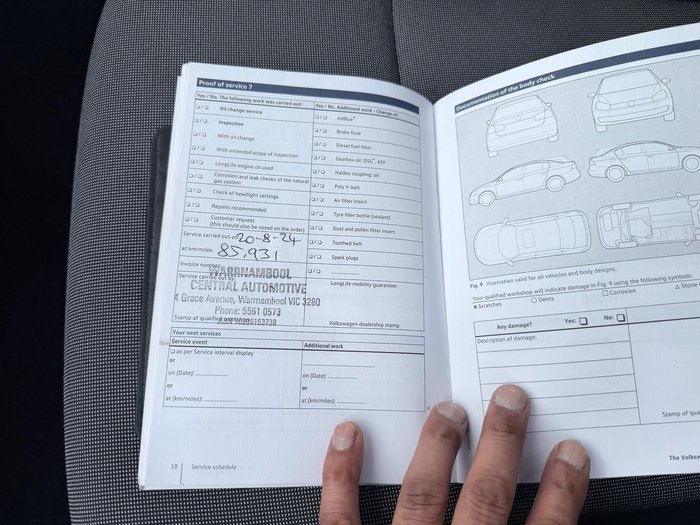 Proof of service 7
Yes / No. The following work was carried out:
Oil change service
Inspection
With oil change
With extended scope of inspection
LongLife engine oil used
Corrosion and leak checks of the natural
gas system
Check of headlight settings
Repairs recommended
Customer request
(this should also be noted on the order)
Service carried out on 20-8-24
at km/miles: 85,931
Invoice number
Service carried out
WARRNAMBOOL
CENTRAL AUTOMOTIVE
4 Grace Avenue, Warrnambool VIC 3280
Phone: 5561 0573
Stamp of qualified
Yes / No. Additional work - Change of:
AdBlue®
Brake fluid
Diesel fuel filter
Gearbox oil: DSG®, ATF
Haldex coupling: oil
Poly V-belt
Air filter insert
Tyre filler bottle (sealant)
Dust and pollen filter insert
Toothed belt
Spark plugs
LongLife mobility guarantee:
Volkswagen dealership stamp
Your next services
Service event
as per Service interval display
or
on (Date):
or
at (km/miles):
Additional work
on (Date):
or
at (km/miles):
18 Service schedule
Documentation of the body check
Fig. 9 Illustration valid for all vehicles and body designs.
Your qualified workshop will indicate damage in Fig. 9 using the following symbols:
x Scratches □ Dents □ Corrosion △ Stone
Any damage? Yes: No:
Description of damage:
Stamp of qua
The Volksw